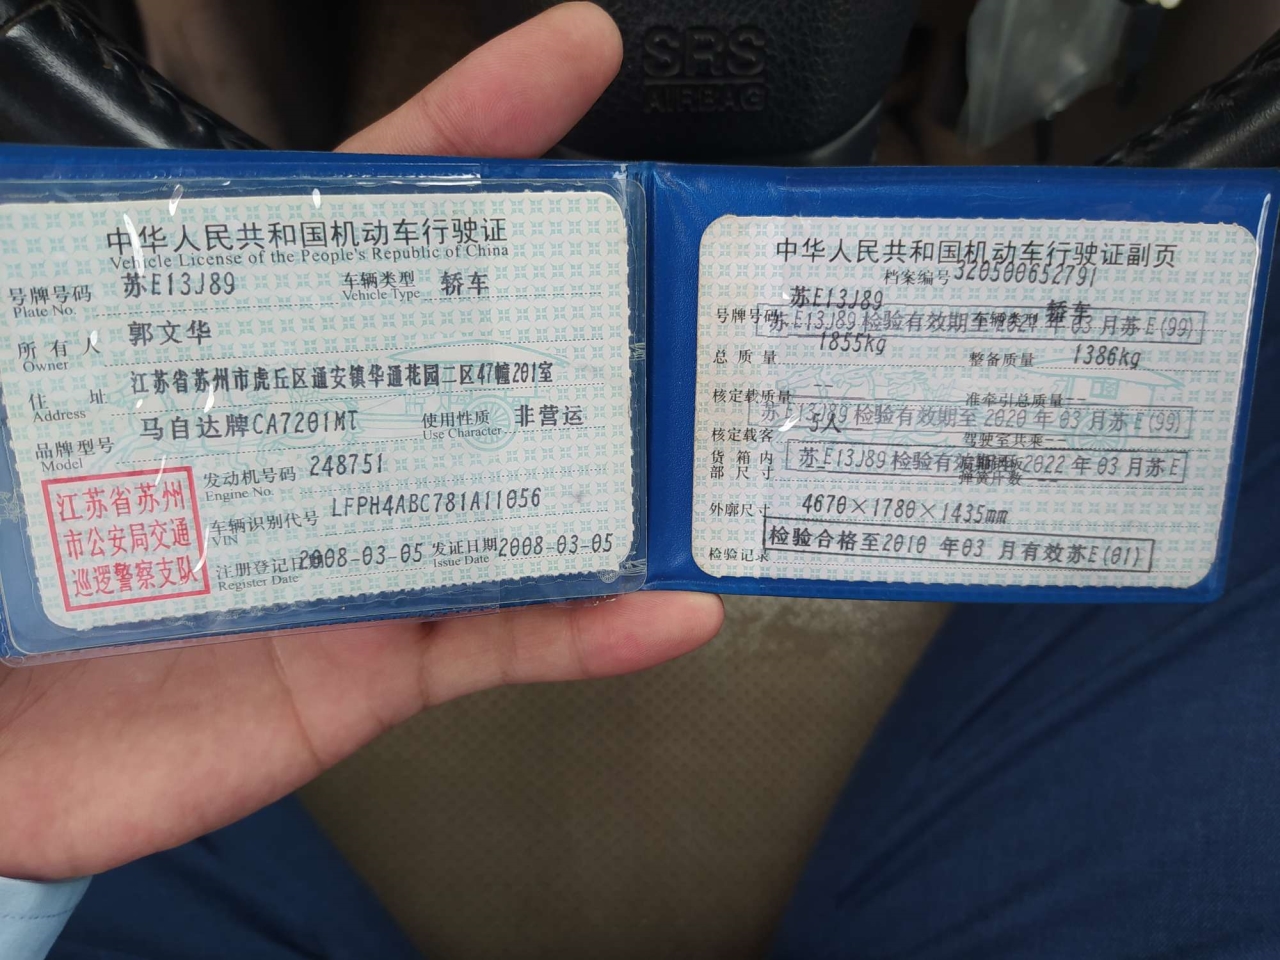 SRS
AIRBAG
中华人民共和国机动车行驶证
Vehicle License of the People's Republic of China
号牌号码 苏E13J89 车辆类型 轿车
Plate No. Vehicle Type
所有人 郭文华
Owner
住址 江苏省苏州市虎丘区通安镇华通花园二区47幢201室
Address
品牌型号 马自达牌CA7201MT 使用性质 非营运
Model Use Character
江苏省苏州
市公安局交通
巡逻警察支队
发动机号码 248751
Engine No.
车辆识别代号 LFPH4ABC781A11056
VIN
注册登记日期 2008-03-05 发证日期 2008-03-05
Register Date Issue Date
中华人民共和国机动车行驶证副页
档案编号 320500652791
号牌号码 苏E13J89 车辆类型 轿车
苏E13J89 检验有效期至 年03月苏E(99)
总质量 1855kg 整备质量 1386kg
核定载质量 -- 准牵引总质量 --
苏E13J89 检验有效期至2020年03月苏E(99)
核定载客 5人 驾驶室共乘 --
货箱内
部尺寸
苏E13J89 检验有效期至2022年03月苏E
弹簧片数 --
外廓尺寸 4670×1780×1435mm
检验记录 检验合格至2010年03月有效苏E(01)